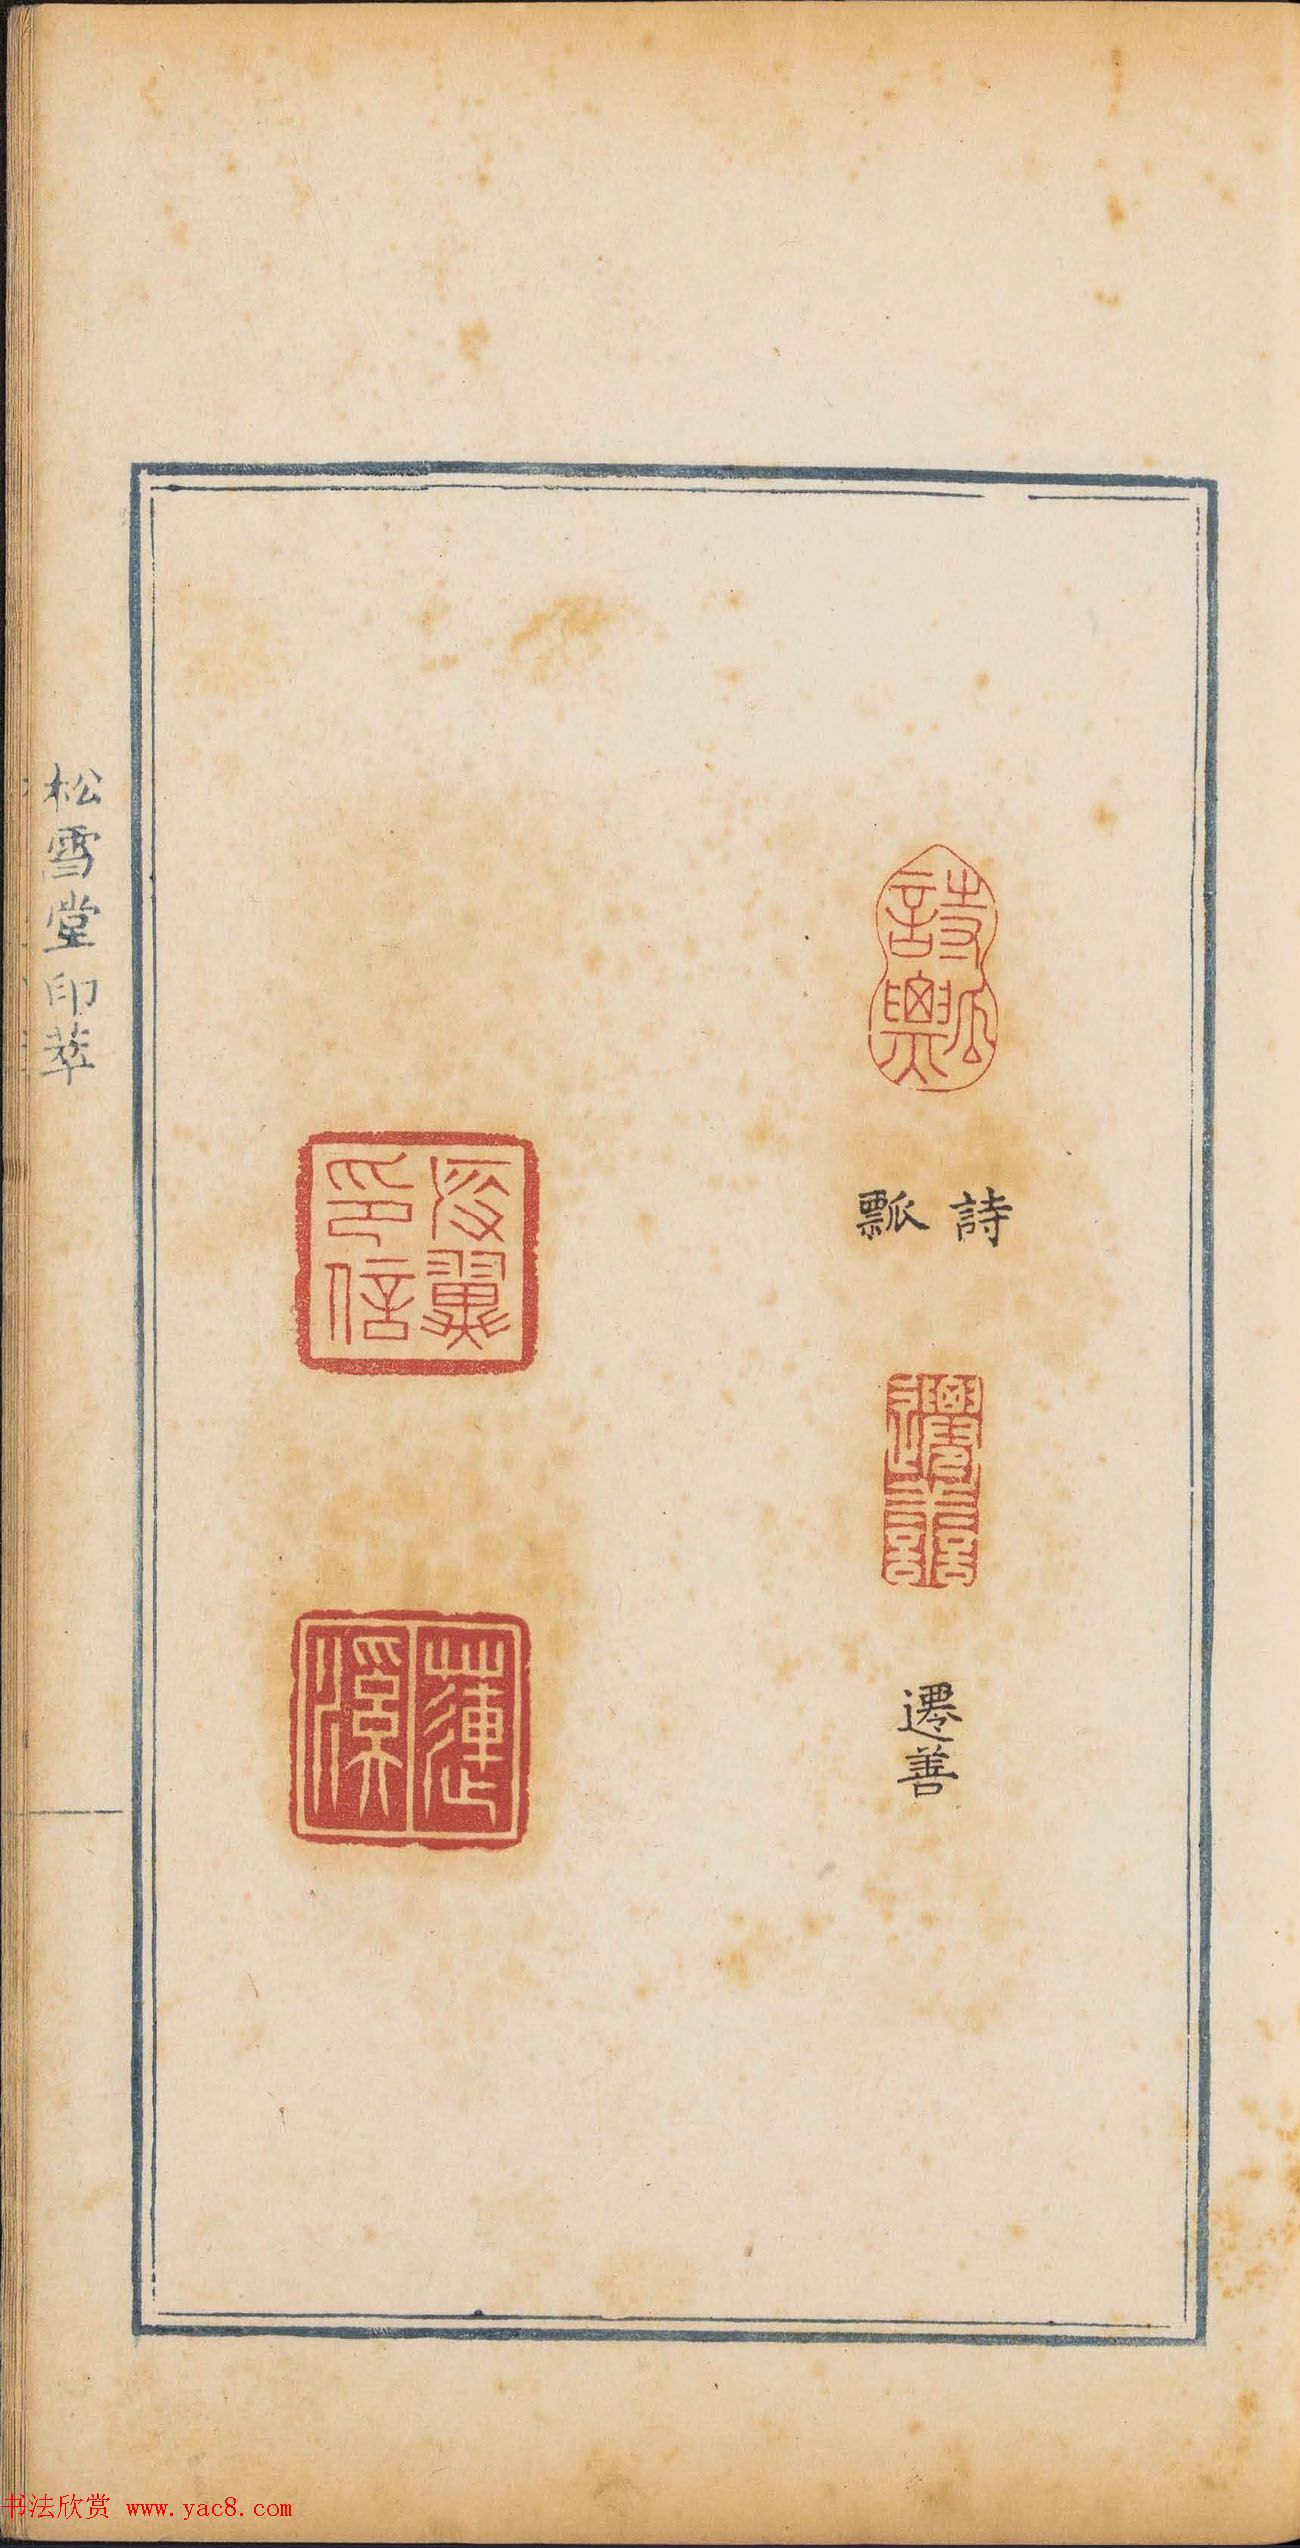 詩瓢
詩瓢
遷善
遷善
印信
蓮溪
松雪堂印萃
书法欣赏 www.yac8.com